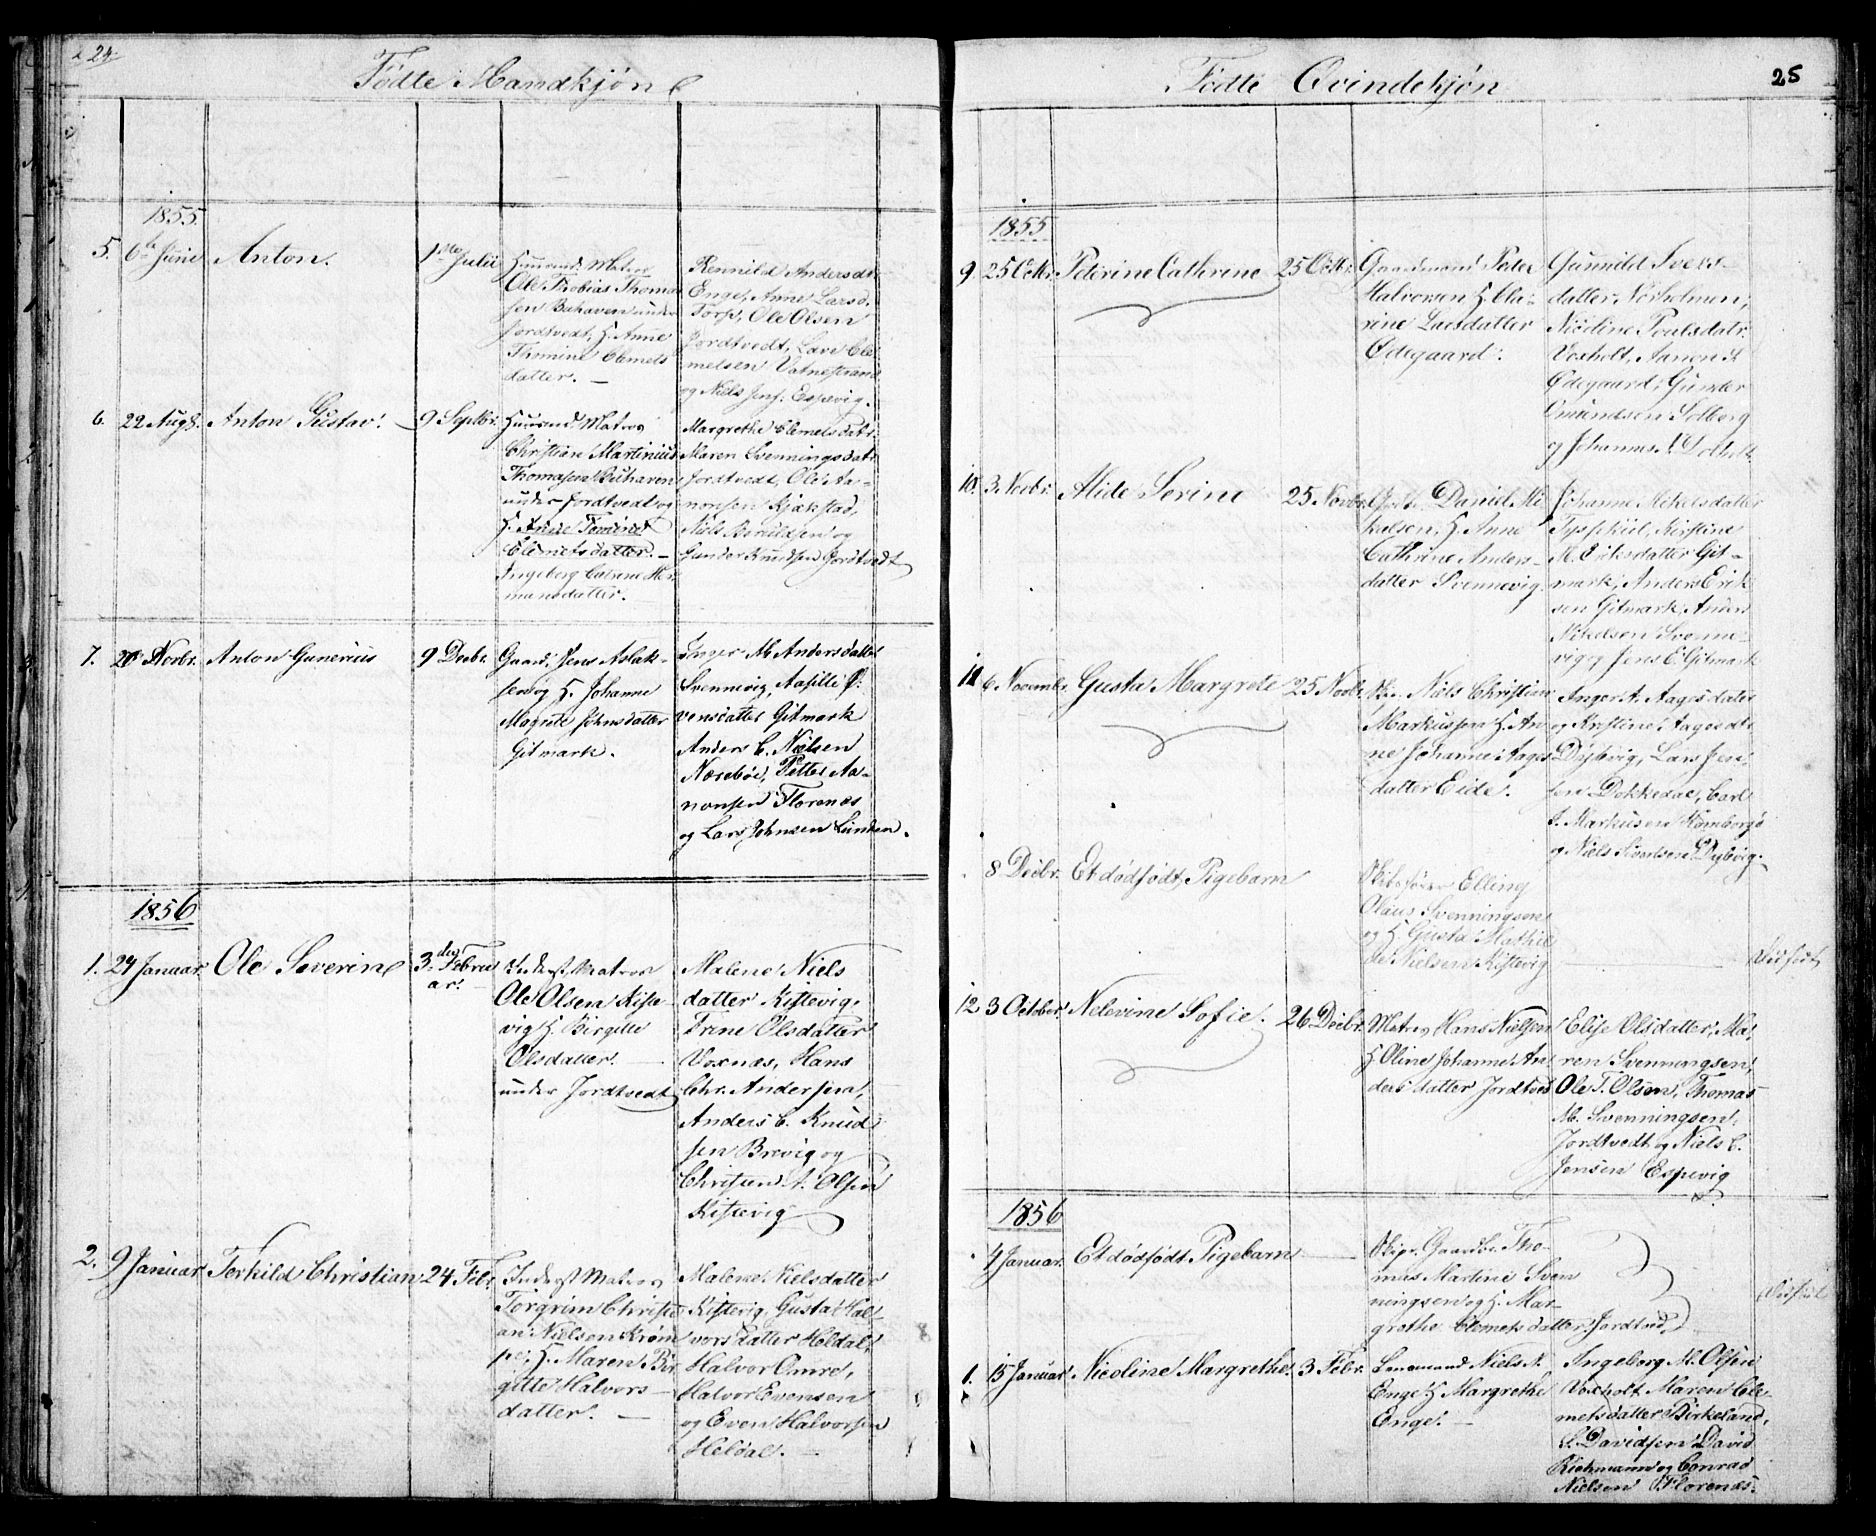 24
Fødte Mandkjøn
1855
5. 6te Junie Anton. 1ste Julii Huusmd. Matros
Ole Thobias Thoma
sen Buhaven under
Jordtvedt, H. Anne
Thomine Clemets
datter. —
Rennild Andersdt.
Enge, Anne Larsd.
Torp, Ole Olsen
Jordtvedt, Lave Cle
melsen Vatnestrand
og Niels Jens. Espevig.
6. 22 Aug. Anton Gustav. 9 Septbr. Huusmd. Matros
Christian Martinius
Thomasen Buhaven
under Jordtvedt og
H. Anne Tomine
Clemetsdatter. —
Ingeborg Catrine Her
mansdatter.
Margrethe Clemetsdatr.
Maren Svenningsdatr.
Jordtvedt, Ole Aa-
nonsen Kjækstad,
Niels Bernildsen og
Gunder Knudsen Jordtvedt
7. 20 Novbr. Anton Gunerius 9 Decbr. Gaardm. Jens Aslak-
sen og H. Johanne
Magrete Johnsdatter
Gitmark.
Inger M. Andersdatter
Svennevig, Aasille
vensdatter Gitmark
Anders C. Nielsen
Næsebøe, Petter Aa-
nonsen Florenæs
og Lars Johnsen Lunden.
1856
1. 24 Januar. Ole Severin 3die Febru
ar.
Inderst, Matros
Ole Olsen Kiste-
vig H. Birgitte
Olsdatter.
under Jordtvedt
Malene Niels
datter Kistevig,
Trine Olsdatter
Voxnæs, Hans
Chr. Andersen,
Anders C. Knud
sen Brevig og
Christen A. Olsen
Kistevig
2. 9 Januar Terkild Christian 24 Febr. Inderst Matros
Torgrim Christi
an Nielsen Krøm
pe, H. Maren Bir
gitte Halvors-
datter. —
Malene Nielsdatter
Kistevig, Gusta Hal
vorsdatter Heldal,
Halvor Omre,
Halvor Evensen
og Even Halvorsen
Heldal.
Fødte Qvindekjøn
25
1855
9. 25 Octbr. Peterine Cathrine 25 Octbr. Gaardmand Peder
Halvorsen H. Cla-
rine Larsdatter
Ødegaard.
Gunnild Ivers
datter Norholmen,
Nicoline Poulsdatr.
Voxholt, Aanon
Ødegaard, Gunder
Omundsen Solberg
og Johannes N. Dolholt
10. 3. Novbr. Alide Serine 25 Novbr. Daniel Mi
kelsen, H. Anne
Cathrine Anders-
datter Svennevig.
Johanne Mikelsdatter
Kirstine
M. Eriksdatter Git-
mark, Anders Erik
sen Gitmark, Anders
Mikelsen Svenne-
vig og Jens E. Gitmark
11 6 Novembr. Gusta Margrete 25 Novbr. Skp. Niels Christian
Markussen H. An
ne Johanne Aages
datter Eide.
Anger A. Aagesdater
og Kristine Aagesdt.
Dybvig, Lars Jen
sen Dokkedal, Carl
J. Markusen Homborgø
og Niels Sivertsen Dybvig.
8 Decbr. Et dødfødt Pigebarn Skibsfører Elling
Olaus Svenningsen
og H. Gusta Mathil
de Nielsen Kistevig
Dødfødt
12 3 October. Nelevine Sofie. 26 Decbr. Matros Hans Nielsen
H. Oline Johanne An
dersdatter Jordtved
Elise Olsdatter, Ma
ren Svenningsen,
Ole T. Olsen, Thomas
M. Svenningsen,
Jordtvedt og Niels C.
Jensen Espevig
1856
4 Januar. Et dødfødt Pigebarn Skipr. Gaardbr. Tho-
mas Martine Sven
ningsen og H. Mar-
grethe Clemetsdatter Jordtved,
Dødfødt
1. 15 Januar Nicoline Margrethe. 3 Febr. Lensmand Niels N.
Enge H. Margrethe
Enge. —
Ingeborg M. Olsen
Voxholt, Maren Cle-
metsdatter Birkeland,
S. Davidsen David
Richmann og Conrad
Nielsen Florenæs.